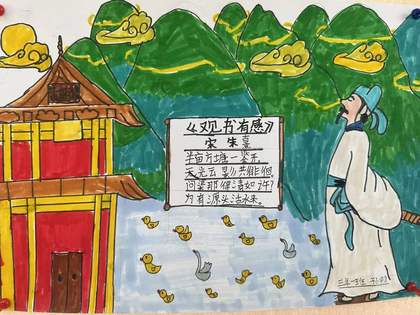 《观书有感》
宋 朱熹
半亩方塘一鉴开,
天光云影共徘徊,
问渠那得清如许?
为有源头活水来。